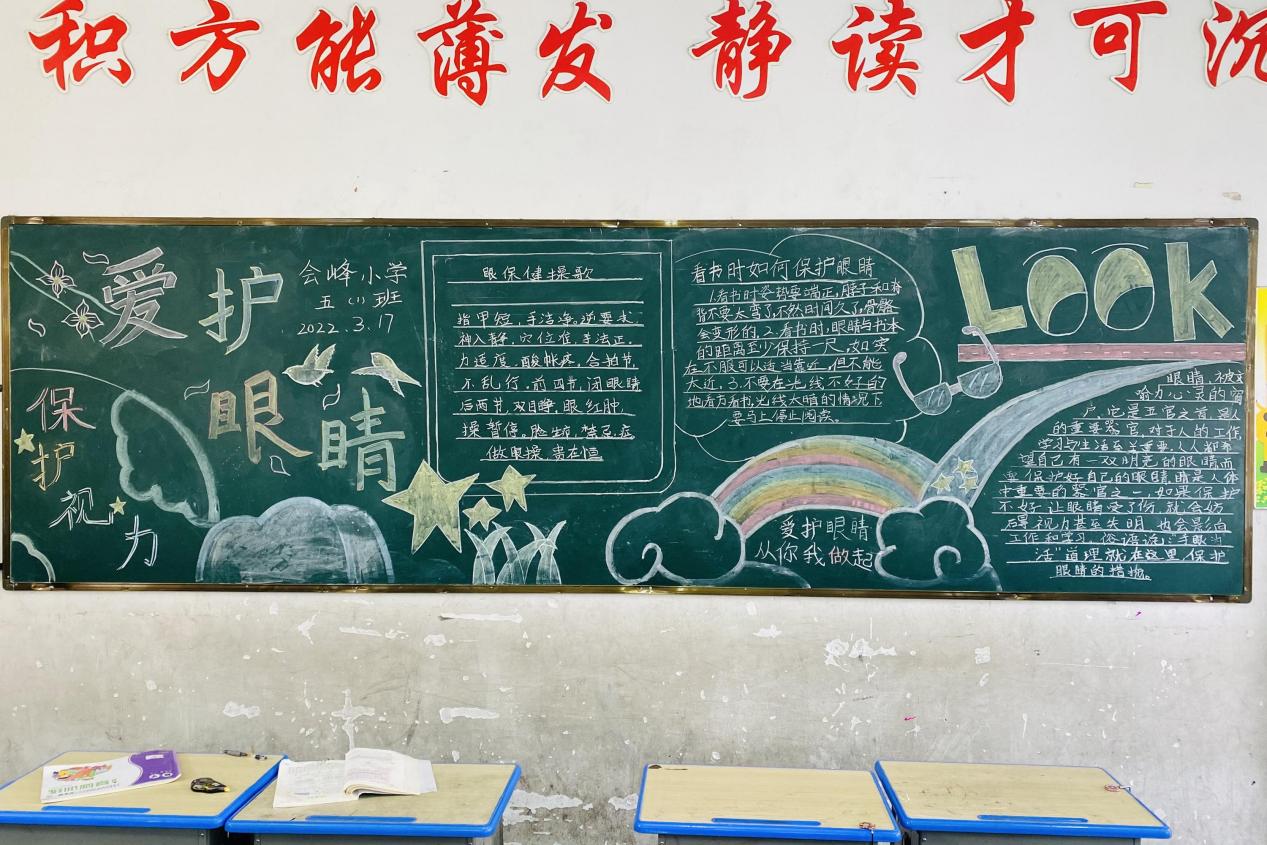 积方能薄发 静读才可沉
爱护
眼睛
会峰小学
五(1)班
2022.3.17
保护视力
眼保健操歌
指甲短，手洁净，逆要求
神入静，穴位准，手法正，
力适度，酸帐疼，合拍节，
不乱行，前四节，闭眼睛
后两节，双目睁，眼红肿，
操暂停。脸生疖，禁忌症
做眼操，贵在恒
看书时如何保护眼睛
1.看书时姿势要端正，脖子和脊
背不要太弯了，不然时间久了，骨骼
会变形的，2.看书时，眼睛与书本
的距离至少保持一尺，如实
在不服可以适当靠近，但不能
太近，3.不要在光线不好的
地看方看书，光线太暗的情况下
要马上停止阅读。
爱护眼睛
从你我做起
LOOK
眼睛，被
喻为心灵的窗
户，它是五官之首，是人
的重要器官，对于人的工作
学习与生活至关重要，人人都希
望自己有一双明亮的眼睛而
要保护好自己的眼睛，睛是人体
中重要的器官之一，如果保护
不好，让眼睛受了伤，就会伤
视力甚至失明，也会影向
工作和学习，俗语话：
活"道理就在这里，保护
眼睛的措施。